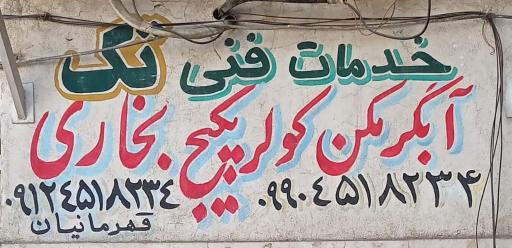 خدمات فنی تک
آبگرمکن کولر پکیج بخاری
۰۹۹۰۴۵۱۸۲۳۴ ۰۹۱۲۴۵۱۸۲۳۴
قهرمانیان